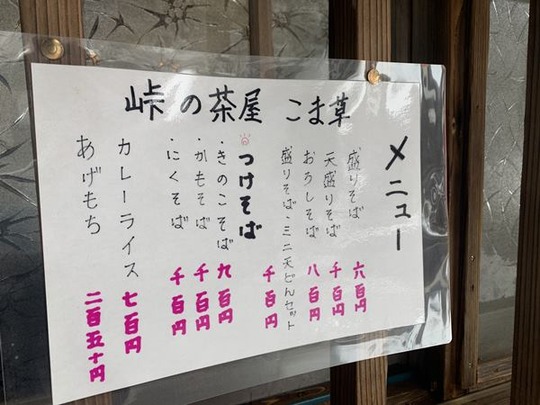 峠の茶屋 こま草
メニュー
盛りそば 六百円
天盛りそば 千百円
おろしそば 八百円
盛りそば・ミニ天どんセット 千百円
つけそば
・きのこそば 九百円
・かもそば 千百円
・にくそば 千百円
カレーライス 七百円
あげもち 二百五十円